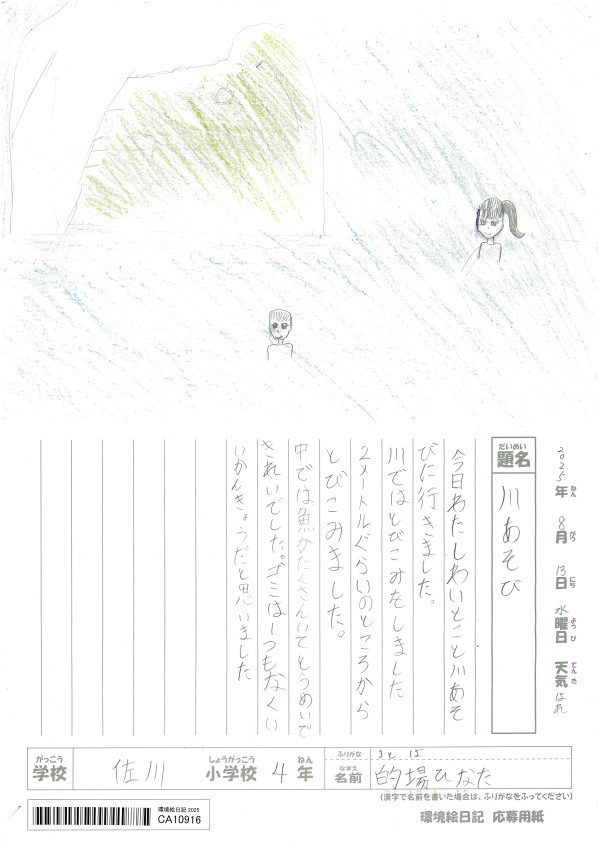 2025年ねん 8月がつ 13日にち 水曜日ようび 天気てんき はれ
題名だいめい 川あそび
今日わたしわいとこと川あそ
びに行きました。
川ではとびこみをしました
2メートルぐらいのところから
とびこみました。
中では魚がたくさんいてとうめいで
きれいでした。ゴミは一つもなくい
いかんきょうだと思いました
学校がっこう 佐川 小学校しょうがっこう 4年ねん
ふりがな まとば
名前なまえ 的場ひなた
(漢字で名前を書いた場合は、ふりがなをふってください)
環境絵日記 2025
CA10916
環境絵日記 応募用紙